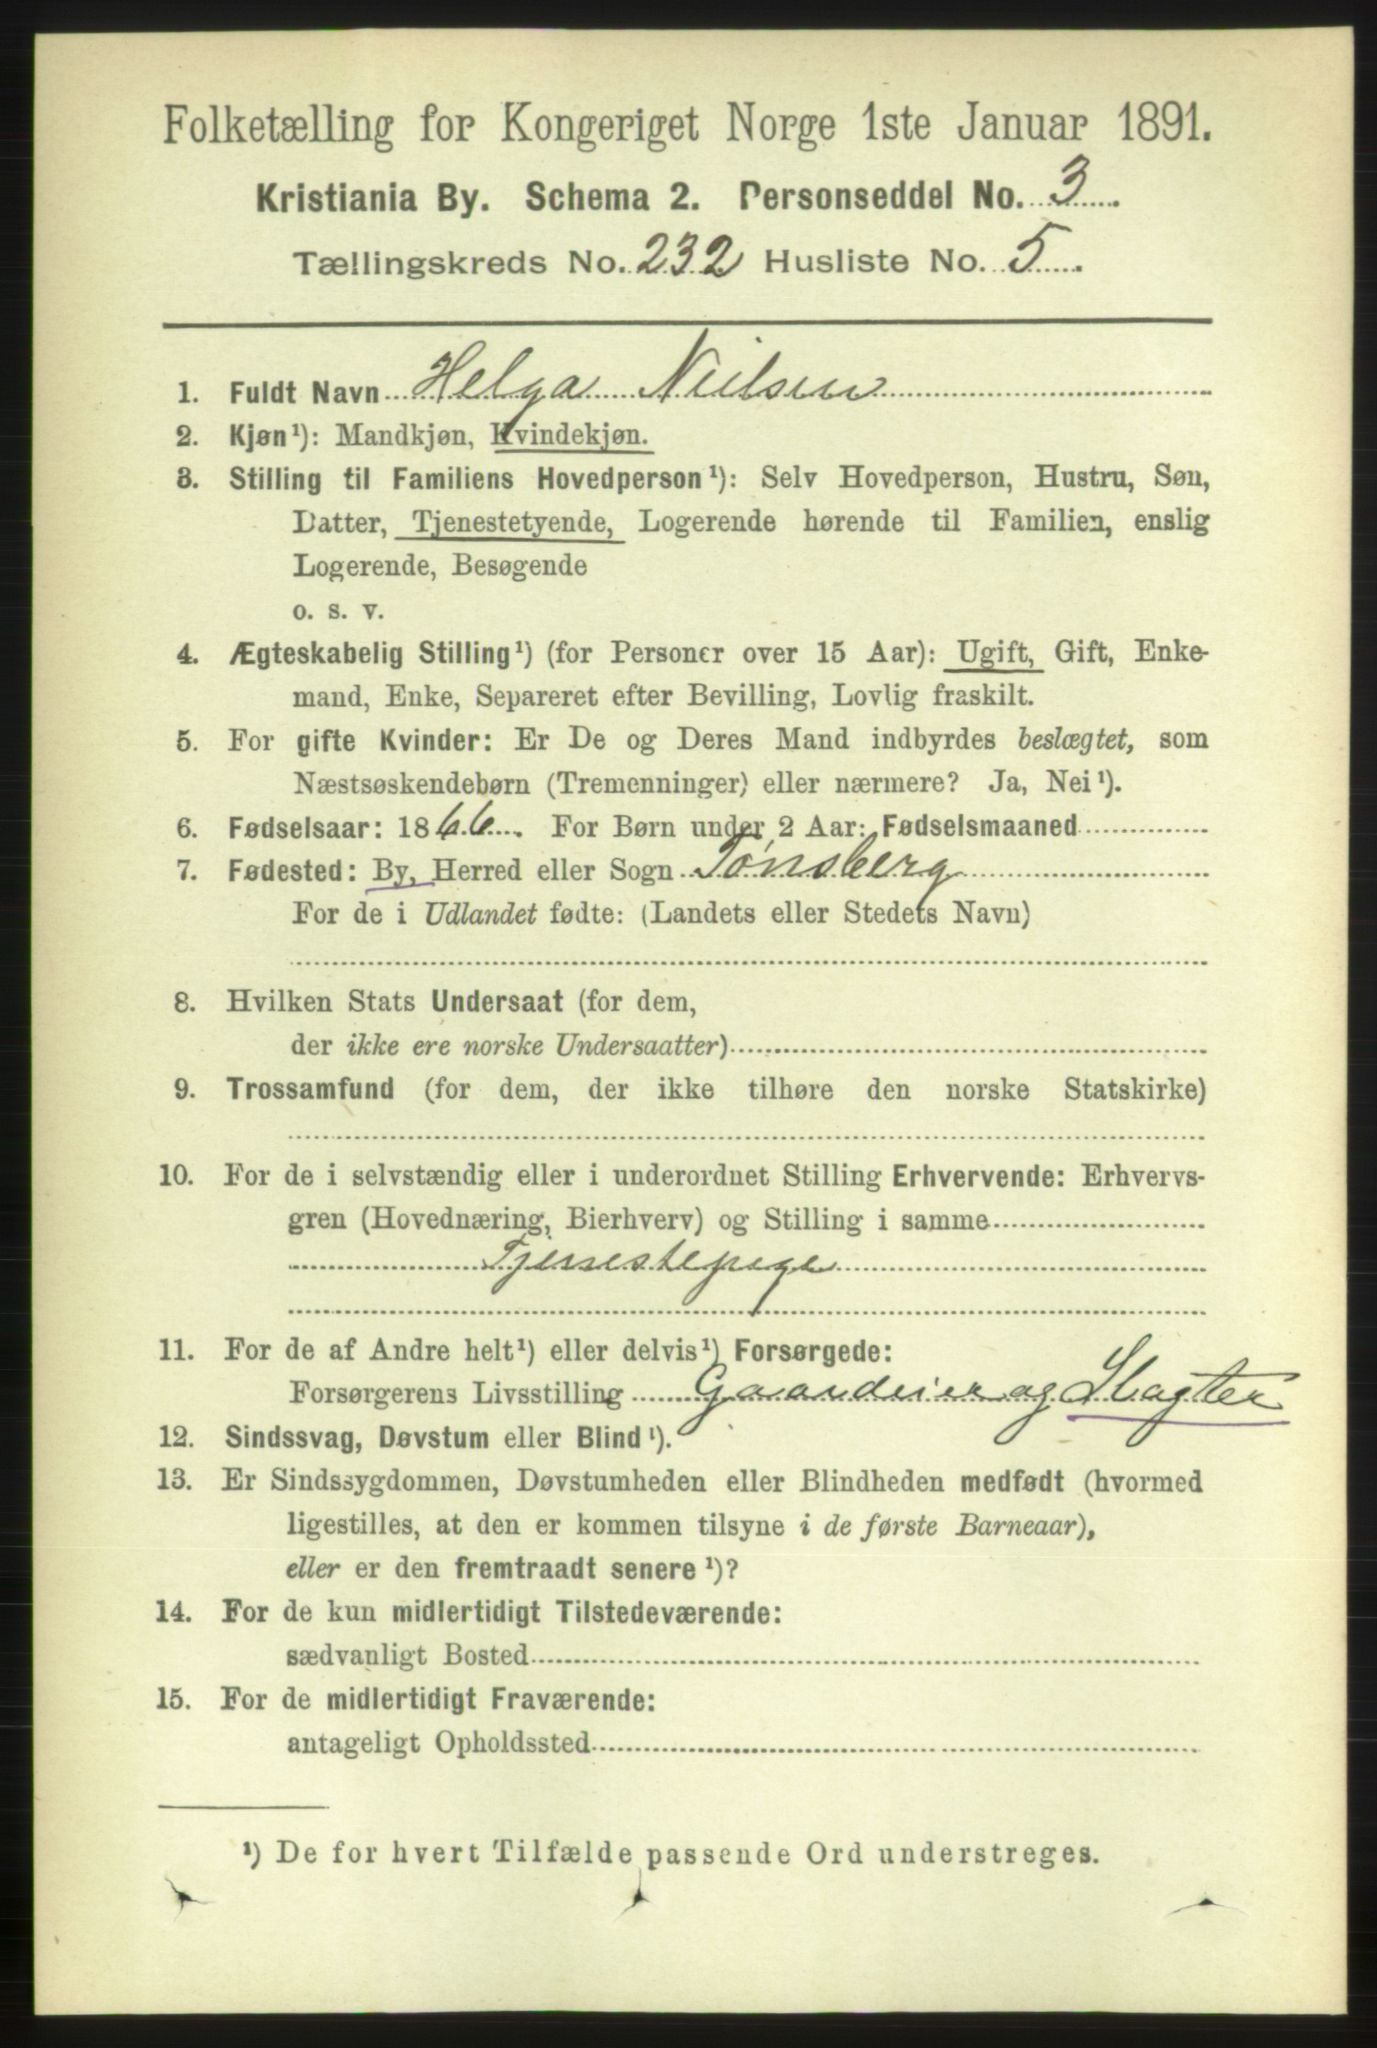 Folketælling for Kongeriget Norge 1ste Januar 1891.
Kristiania By. Schema 2. Personseddel No. 3
Tællingskreds No. 232 Husliste No. 5
1. Fuldt Navn Helga Nielsen
2. Kjøn¹): Mandkjøn, Kvindekjøn.
3. Stilling til Familiens Hovedperson¹): Selv Hovedperson, Hustru, Søn,
Datter, Tjenestetyende, Logerende hørende til Familien, enslig
Logerende, Besøgende
o. s. v.
4. Ægteskabelig Stilling¹) (for Personer over 15 Aar): Ugift, Gift, Enke-
mand, Enke, Separeret efter Bevilling, Lovlig fraskilt.
5. For gifte Kvinder: Er De og Deres Mand indbyrdes beslægtet, som
Næstsøskendebørn (Tremenninger) eller nærmere? Ja, Nei¹).
6. Fødselsaar: 1866. For Børn under 2 Aar: Fødselsmaaned
7. Fødested: By, Herred eller Sogn Tønsberg
For de i Udlandet fødte: (Landets eller Stedets Navn)
8. Hvilken Stats Undersaat (for dem,
der ikke ere norske Undersaatter)
9. Trossamfund (for dem, der ikke tilhøre den norske Statskirke)
10. For de i selvstændig eller i underordnet Stilling Erhvervende: Erhvervs-
gren (Hovednæring, Bierhverv) og Stilling i samme
Tjenestepige
11. For de af Andre helt¹) eller delvis¹) Forsørgede:
Forsørgerens Livsstilling Gaardeier og Slagter
12. Sindssvag, Døvstum eller Blind¹).
13. Er Sindssygdommen, Døvstumheden eller Blindheden medfødt (hvormed
ligestilles, at den er kommen tilsyne i de første Barneaar),
eller er den fremtraadt senere¹)?
14. For de kun midlertidigt Tilstedeværende:
sædvanligt Bosted
15. For de midlertidigt Fraværende:
antageligt Opholdssted
¹) De for hvert Tilfælde passende Ord understreges.